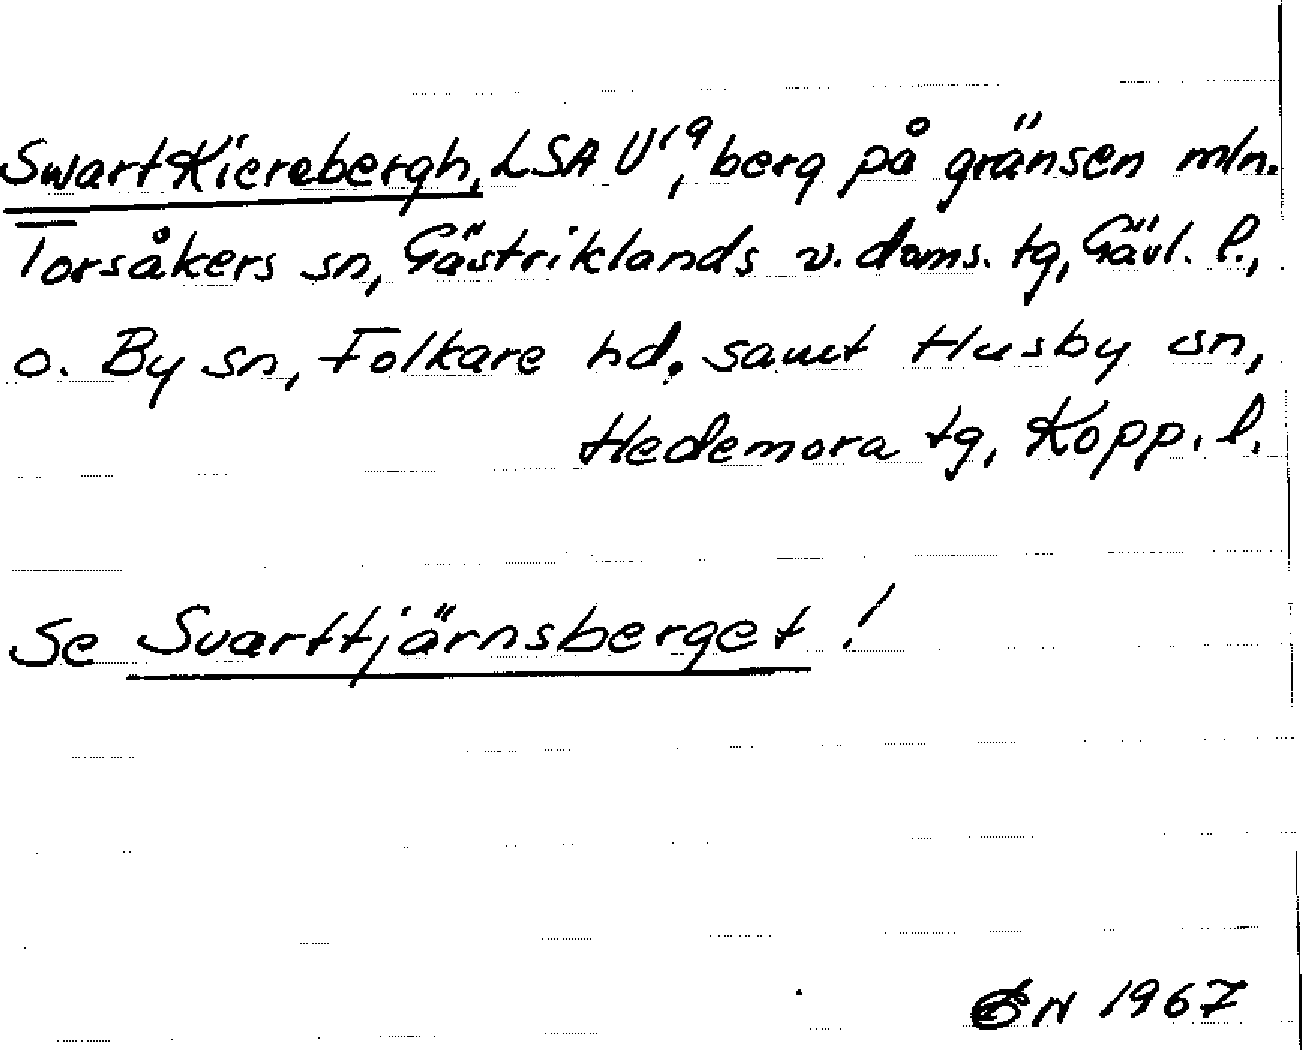 SwartKierebergh, LSA U¹⁹, berg på gränsen mln.
Torsåkers sn, Gästriklands v. doms. tg, Gävl. l.,
o. By sn, Folkare hd. samt Husby sn,
Hedemora tg, Kopp. l.
Se Svarttjärnsberget!
1967